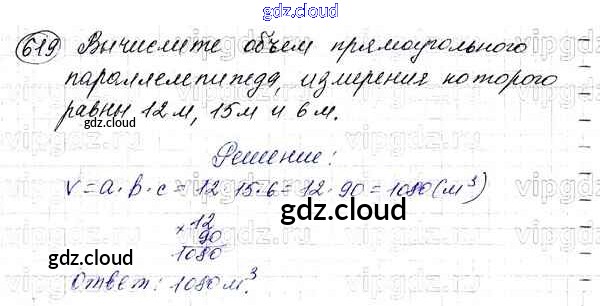 gdz.cloud
619 Вычислите объем прямоугольного
параллелепипеда, измерения которого
равны 12 м, 15 м и 6 м.
gdz.cloud
Решение:
V = a · b · c = 12 · 15 · 6 = 12 · 90 = 1080 (м³)
gdz.cloud
× 12
90
1080
gdz.cloud
Ответ: 1080 м³.